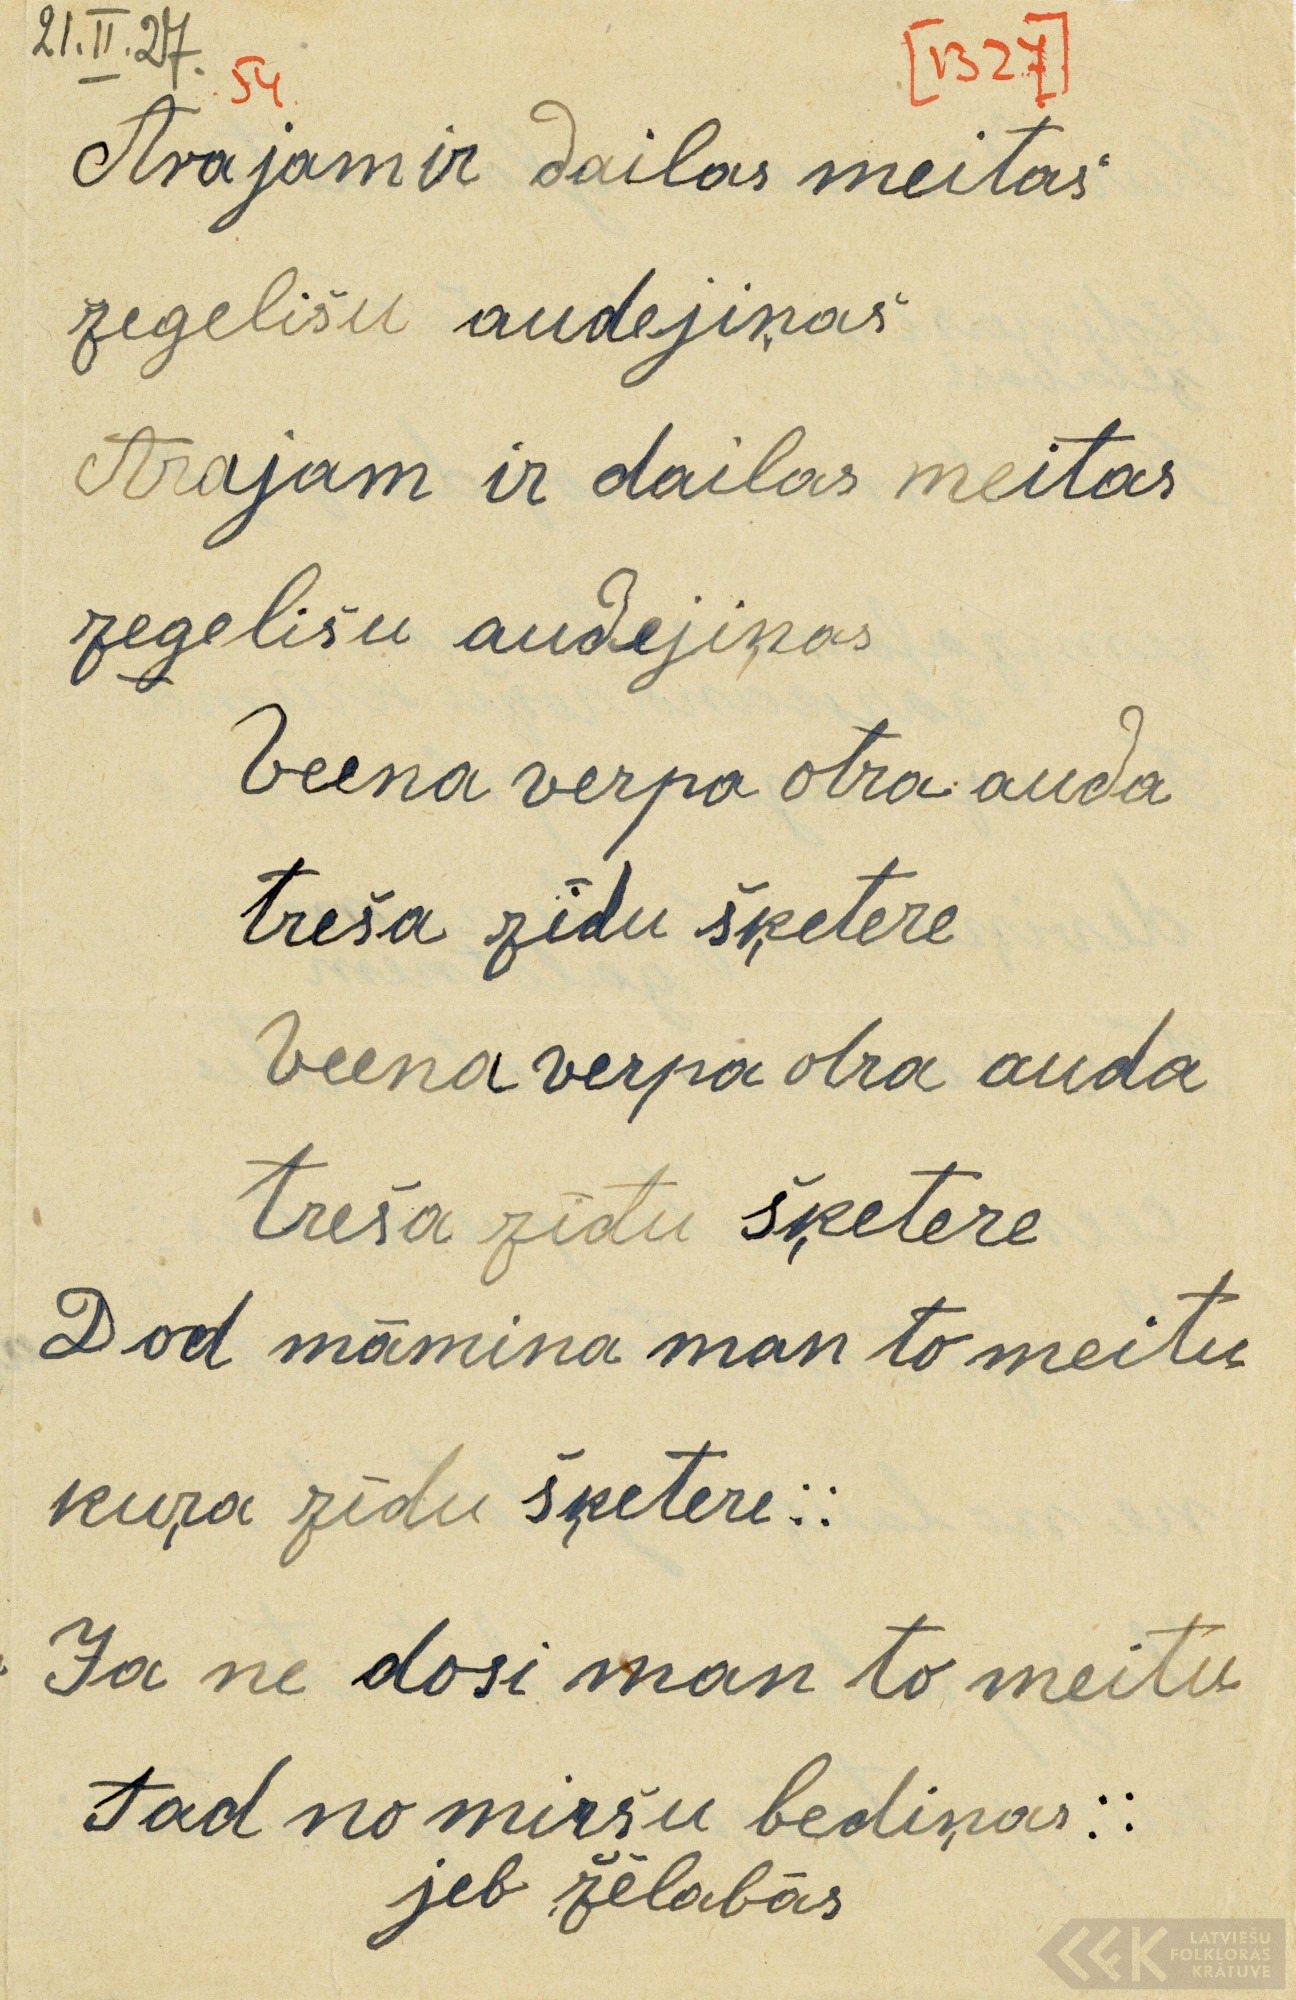 21.II.27.
54
[1327]
Arajam ir dailas meitas
zegelišu audejiņas
Arajam ir dailas meitas
zegelišu audejiņas
Veena verpa otra auda
treša zīdu šķetere
Veena verpa otra auda
treša zīdu šķetere
Dod māmina man to meitu
kuŗa zīdu šķetere::
Ja ne dosi man to meitu
tad no miršu bediņas::
jeb žēlabās
LATVIEŠU
FOLKLORAS
KRĀTUVE